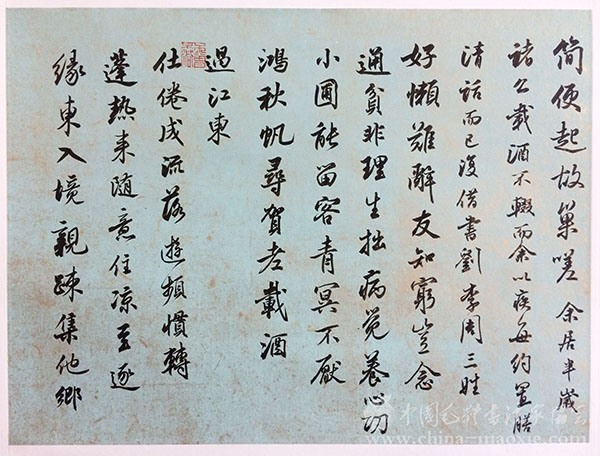 简便起故巢嗟余居半歲
諸公載酒不輟而余以疾每約置膳
清話而已復借書劉李周三姓
好懶難辭友知窮豈念
通貧非理生拙病覺養心功
小圃能留客青冥不厭
鴻秋帆尋賀老載酒
過江東
仕倦成流落遊頻慣轉
蓬熱來随意住凉至逐
緣東入境親疎集他鄉
www.china-maoxie.com